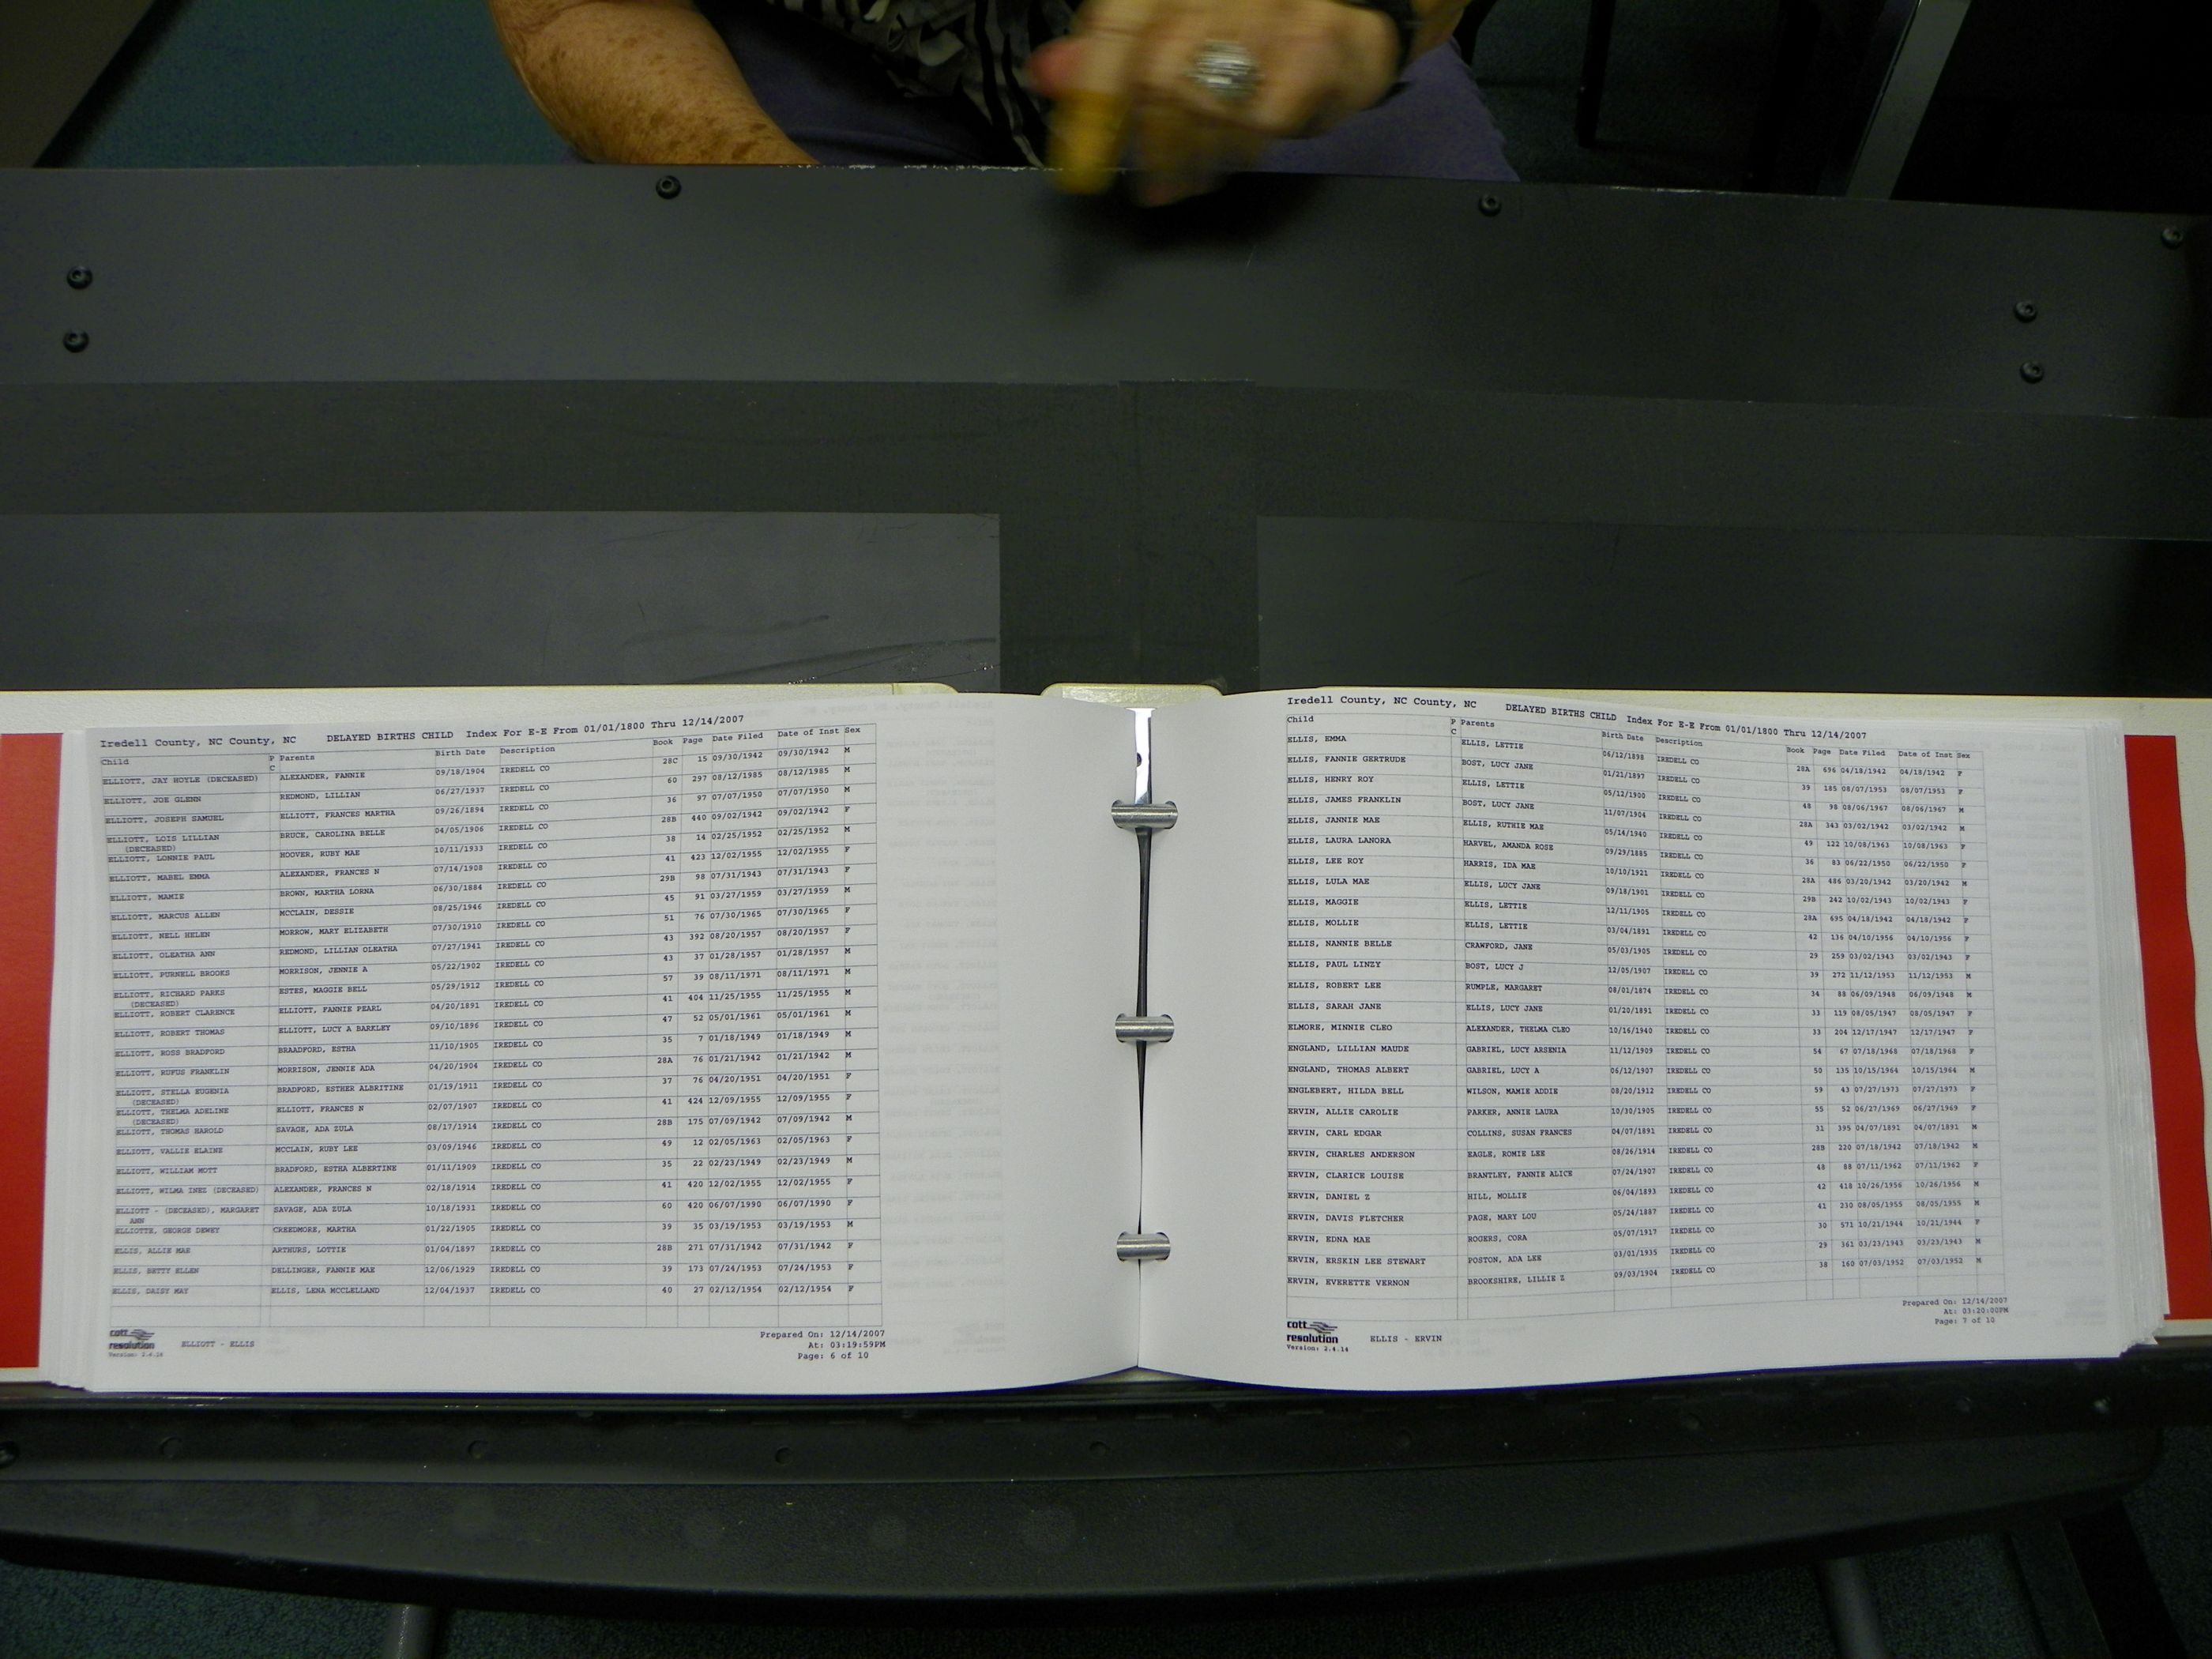 Iredell County, NC County, NC DELAYED BIRTHS CHILD Index For E-E From 01/01/1800 Thru 12/14/2007
Child PC Parents Birth Date Description Book Page Date Filed Date of Inst Sex
ELLIOTT, JAY HOYLE (DECEASED) ALEXANDER, FANNIE 09/18/1904 IREDELL CO 28C 15 09/30/1942 09/30/1942 M
ELLIOTT, JOE GLENN REDMOND, LILLIAN 06/27/1937 IREDELL CO 60 297 08/12/1985 08/12/1985 M
ELLIOTT, JOSEPH SAMUEL ELLIOTT, FRANCES MARTHA 09/26/1894 IREDELL CO 36 97 07/07/1950 07/07/1950 M
ELLIOTT, LOIS LILLIAN BRUCE, CAROLINA BELLE 04/05/1906 IREDELL CO 28B 440 09/02/1942 09/02/1942 F
(DECEASED)
ELLIOTT, LONNIE PAUL HOOVER, RUBY MAE 10/11/1933 IREDELL CO 38 14 02/25/1952 02/25/1952 M
ELLIOTT, MABEL EMMA ALEXANDER, FRANCES N 07/14/1908 IREDELL CO 41 423 12/02/1955 12/02/1955 F
ELLIOTT, MAMIE BROWN, MARTHA LORNA 06/30/1884 IREDELL CO 29B 98 07/31/1943 07/31/1943 F
ELLIOTT, MARCUS ALLEN MCCLAIN, DESSIE 08/25/1946 IREDELL CO 45 91 03/27/1959 03/27/1959 M
ELLIOTT, NELL HELEN MORROW, MARY ELIZABETH 07/30/1910 IREDELL CO 51 76 07/30/1965 07/30/1965 F
ELLIOTT, OLEATHA ANN REDMOND, LILLIAN OLEATHA 07/27/1941 IREDELL CO 43 392 08/20/1957 08/20/1957 F
ELLIOTT, PURNELL BROOKS MORRISON, JENNIE A 05/22/1902 IREDELL CO 43 37 01/28/1957 01/28/1957 M
ELLIOTT, RICHARD PARKS ESTES, MAGGIE BELL 05/29/1912 IREDELL CO 57 39 08/11/1971 08/11/1971 M
(DECEASED)
ELLIOTT, ROBERT CLARENCE ELLIOTT, FANNIE PEARL 04/20/1891 IREDELL CO 41 404 11/25/1955 11/25/1955 M
ELLIOTT, ROBERT THOMAS ELLIOTT, LUCY A BARKLEY 09/10/1896 IREDELL CO 47 52 05/01/1961 05/01/1961 M
ELLIOTT, ROSS BRADFORD BRAADFORD, ESTHA 11/10/1905 IREDELL CO 35 7 01/18/1949 01/18/1949 M
ELLIOTT, RUFUS FRANKLIN MORRISON, JENNIE ADA 04/20/1904 IREDELL CO 28A 76 01/21/1942 01/21/1942 M
ELLIOTT, STELLA EUGENIA BRADFORD, ESTHER ALBRITINE 01/19/1911 IREDELL CO 37 76 04/20/1951 04/20/1951 F
(DECEASED)
ELLIOTT, THELMA ADELINE ELLIOTT, FRANCES N 02/07/1907 IREDELL CO 41 424 12/09/1955 12/09/1955 F
(DECEASED)
ELLIOTT, THOMAS HAROLD SAVAGE, ADA ZULA 08/17/1914 IREDELL CO 28B 175 07/09/1942 07/09/1942 M
ELLIOTT, VALLIE ELAINE MCCLAIN, RUBY LEE 03/09/1946 IREDELL CO 49 12 02/05/1963 02/05/1963 F
ELLIOTT, WILLIAM MOTT BRADFORD, ESTHA ALBERTINE 01/11/1909 IREDELL CO 35 22 02/23/1949 02/23/1949 M
ELLIOTT, WILMA INEZ (DECEASED) ALEXANDER, FRANCES N 02/18/1914 IREDELL CO 41 420 12/02/1955 12/02/1955 F
ELLIOTT - (DECEASED), MARGARET SAVAGE, ADA ZULA 10/18/1931 IREDELL CO 60 420 06/07/1990 06/07/1990 F
ANN
ELLIOTTE, GEORGE DEWEY CREEDMORE, MARTHA 01/22/1905 IREDELL CO 39 35 03/19/1953 03/19/1953 M
ELLIS, ALLIE MAE ARTHURS, LOTTIE 01/04/1897 IREDELL CO 28B 271 07/31/1942 07/31/1942 F
ELLIS, BETTY ELLEN DELLINGER, FANNIE MAE 12/06/1929 IREDELL CO 39 173 07/24/1953 07/24/1953 F
ELLIS, DAISY MAY ELLIS, LENA MCCLELLAND 12/04/1937 IREDELL CO 40 27 02/12/1954 02/12/1954 F
cott
resolution
Version: 2.4.14
ELLIOTT - ELLIS
Prepared On: 12/14/2007
At: 03:19:59PM
Page: 6 of 10
Iredell County, NC County, NC DELAYED BIRTHS CHILD Index For E-E From 01/01/1800 Thru 12/14/2007
Child PC Parents Birth Date Description Book Page Date Filed Date of Inst Sex
ELLIS, EMMA ELLIS, LETTIE 06/12/1898 IREDELL CO 28A 696 04/18/1942 04/18/1942 F
ELLIS, FANNIE GERTRUDE BOST, LUCY JANE 01/21/1897 IREDELL CO 39 185 08/07/1953 08/07/1953 F
ELLIS, HENRY ROY ELLIS, LETTIE 05/12/1900 IREDELL CO 48 98 08/06/1967 08/06/1967 M
ELLIS, JAMES FRANKLIN BOST, LUCY JANE 11/07/1904 IREDELL CO 28A 343 03/02/1942 03/02/1942 M
ELLIS, JANNIE MAE ELLIS, RUTHIE MAE 05/14/1940 IREDELL CO 49 122 10/08/1963 10/08/1963 F
ELLIS, LAURA LANORA HARVEL, AMANDA ROSE 09/29/1885 IREDELL CO 36 83 06/22/1950 06/22/1950 F
ELLIS, LEE ROY HARRIS, IDA MAE 10/10/1921 IREDELL CO 28A 486 03/20/1942 03/20/1942 M
ELLIS, LULA MAE ELLIS, LUCY JANE 09/18/1901 IREDELL CO 29B 242 10/02/1943 10/02/1943 F
ELLIS, MAGGIE ELLIS, LETTIE 12/11/1905 IREDELL CO 28A 695 04/18/1942 04/18/1942 F
ELLIS, MOLLIE ELLIS, LETTIE 03/04/1891 IREDELL CO 42 136 04/10/1956 04/10/1956 F
ELLIS, NANNIE BELLE CRAWFORD, JANE 05/03/1905 IREDELL CO 29 259 03/02/1943 03/02/1943 F
ELLIS, PAUL LINZY BOST, LUCY J 12/05/1907 IREDELL CO 39 272 11/12/1953 11/12/1953 M
ELLIS, ROBERT LEE RUMPLE, MARGARET 08/01/1874 IREDELL CO 34 88 06/09/1948 06/09/1948 M
ELLIS, SARAH JANE ELLIS, LUCY JANE 01/20/1891 IREDELL CO 33 119 08/05/1947 08/05/1947 F
ELMORE, MINNIE CLEO ALEXANDER, THELMA CLEO 10/16/1940 IREDELL CO 33 204 12/17/1947 12/17/1947 F
ENGLAND, LILLIAN MAUDE GABRIEL, LUCY ARSENIA 11/12/1909 IREDELL CO 54 67 07/18/1968 07/18/1968 F
ENGLAND, THOMAS ALBERT GABRIEL, LUCY A 06/12/1907 IREDELL CO 50 135 10/15/1964 10/15/1964 M
ENGLEBERT, HILDA BELL WILSON, MAMIE ADDIE 08/20/1912 IREDELL CO 59 43 07/27/1973 07/27/1973 F
ERVIN, ALLIE CAROLIE PARKER, ANNIE LAURA 10/30/1905 IREDELL CO 55 52 06/27/1969 06/27/1969 F
ERVIN, CARL EDGAR COLLINS, SUSAN FRANCES 04/07/1891 IREDELL CO 31 395 04/07/1891 04/07/1891 M
ERVIN, CHARLES ANDERSON EAGLE, ROMIE LEE 08/26/1914 IREDELL CO 28B 220 07/18/1942 07/18/1942 M
ERVIN, CLARICE LOUISE BRANTLEY, FANNIE ALICE 07/24/1907 IREDELL CO 48 88 07/11/1962 07/11/1962 F
ERVIN, DANIEL Z HILL, MOLLIE 06/04/1893 IREDELL CO 42 418 10/26/1956 10/26/1956 M
ERVIN, DAVIS FLETCHER PAGE, MARY LOU 05/24/1887 IREDELL CO 41 230 08/05/1955 08/05/1955 M
ERVIN, EDNA MAE ROGERS, CORA 05/07/1917 IREDELL CO 30 571 10/21/1944 10/21/1944 F
ERVIN, ERSKIN LEE STEWART POSTON, ADA LEE 03/01/1935 IREDELL CO 29 361 03/23/1943 03/23/1943 M
ERVIN, EVERETTE VERNON BROOKSHIRE, LILLIE Z 09/03/1904 IREDELL CO 38 160 07/03/1952 07/03/1952 M
cott
resolution
Version: 2.4.14
ELLIS - ERVIN
Prepared On: 12/14/2007
At: 03:20:00PM
Page: 7 of 10